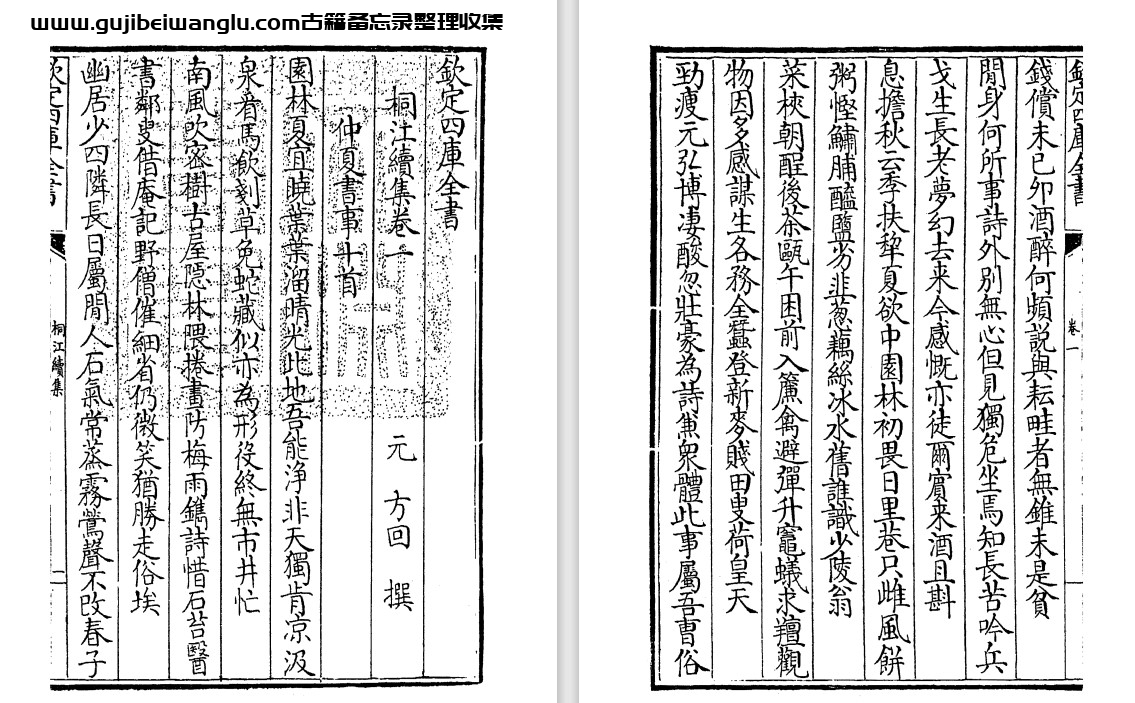 www.gujibeiwanglu.com古籍备忘录整理收集
欽定四庫全書
桐江續集卷一
元 方回 撰
仲夏書事十首
園林夏宜曉葉葉溜晴光此地吾能淨非天獨肯凉汲
泉看馬飲剗草免蛇藏似亦為形役終無市井忙
南風吹密樹古屋隠林隈捲畫防梅雨鐫詩惜石苔醫
書鄰叟借庵記野僧催細省仍微笑猶勝走俗埃
幽居少四隣長日屬閒人石氣常蒸霧鶯聲不改春子
欽定四庫全書
桐江續集
一
欽定四庫全書
卷一
錢償未已卯酒醉何頻説與耘畦者無錐未是貧
閒身何所事詩外别無心但見獨危坐焉知長苦吟兵
戈生長老夢幻去来今感慨亦徒爾賓来酒且斟
息擔秋云季扶犂夏欲中園林初畏日里巷只雌風餅
粥慳鱐脯醯鹽劣韭葱藕絲冰水舊誰識少陵翁
菜梜朝酲後茶甌午困前入簾禽避彈升竈蟻求羶觀
物因多感謀生各務全蠶登新麥賤田叟荷皇天
勁瘦元弘博凄酸忽壯豪為詩兼衆體此事屬吾曹俗